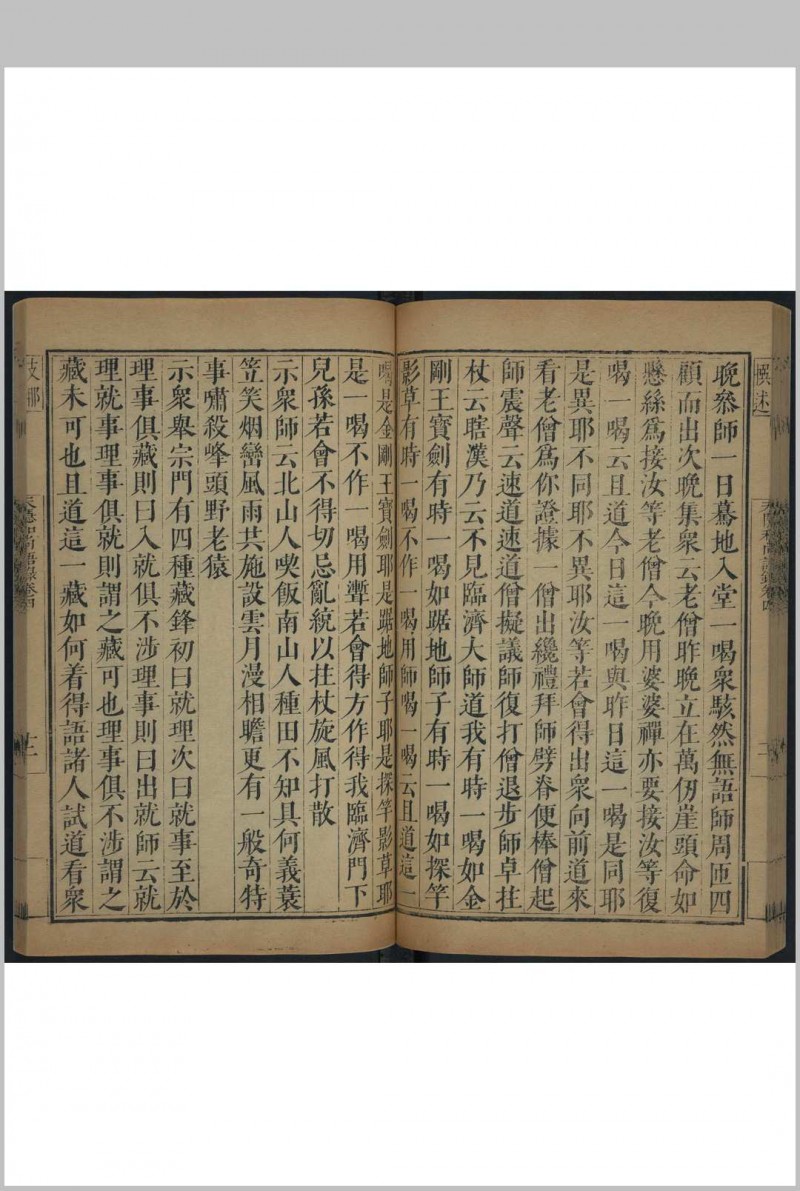 晚叅師一日驀地入堂一喝衆駭然無語師周匝四
顧而出次晚集衆云老僧昨晚立在萬仞崖頭命如
懸絲爲接汝等老僧今晚用婆婆禪亦要接汝等復
喝一喝云且道今日這一喝與昨日這一喝是同耶
是異耶不同耶不異耶汝等若會得出衆向前道來
看老僧爲你證據一僧出纔禮拜師劈脊便棒僧起
師震聲云速道速道僧擬議師復打僧退步師卓拄
杖云瞎漢乃云不見臨濟大師道我有時一喝如金
剛王寶劍有時一喝如踞地師子有時一喝如探竿
影草有時一喝不作一喝用師喝一喝云且道這一
喝是金剛王寶劍耶是踞地師子耶是探竿影草耶
是一喝不作一喝用聻若會得方作得我臨濟門下
兒孫若會不得切忌亂統以拄杖旋風打散
示衆師云北山人喫飯南山人種田不知具何義蓑
笠笑烟巒風雨共施設雲月漫相瞻更有一般奇特
事嘯殺峰頭野老猿
示衆舉宗門有四種藏鋒初曰就理次曰就事至於
理事俱藏則曰入就俱不涉理事則曰出就師云就
理就事理事俱就則謂之藏可也理事俱不涉謂之
藏未可也且道這一藏如何着得語諸人試道看衆